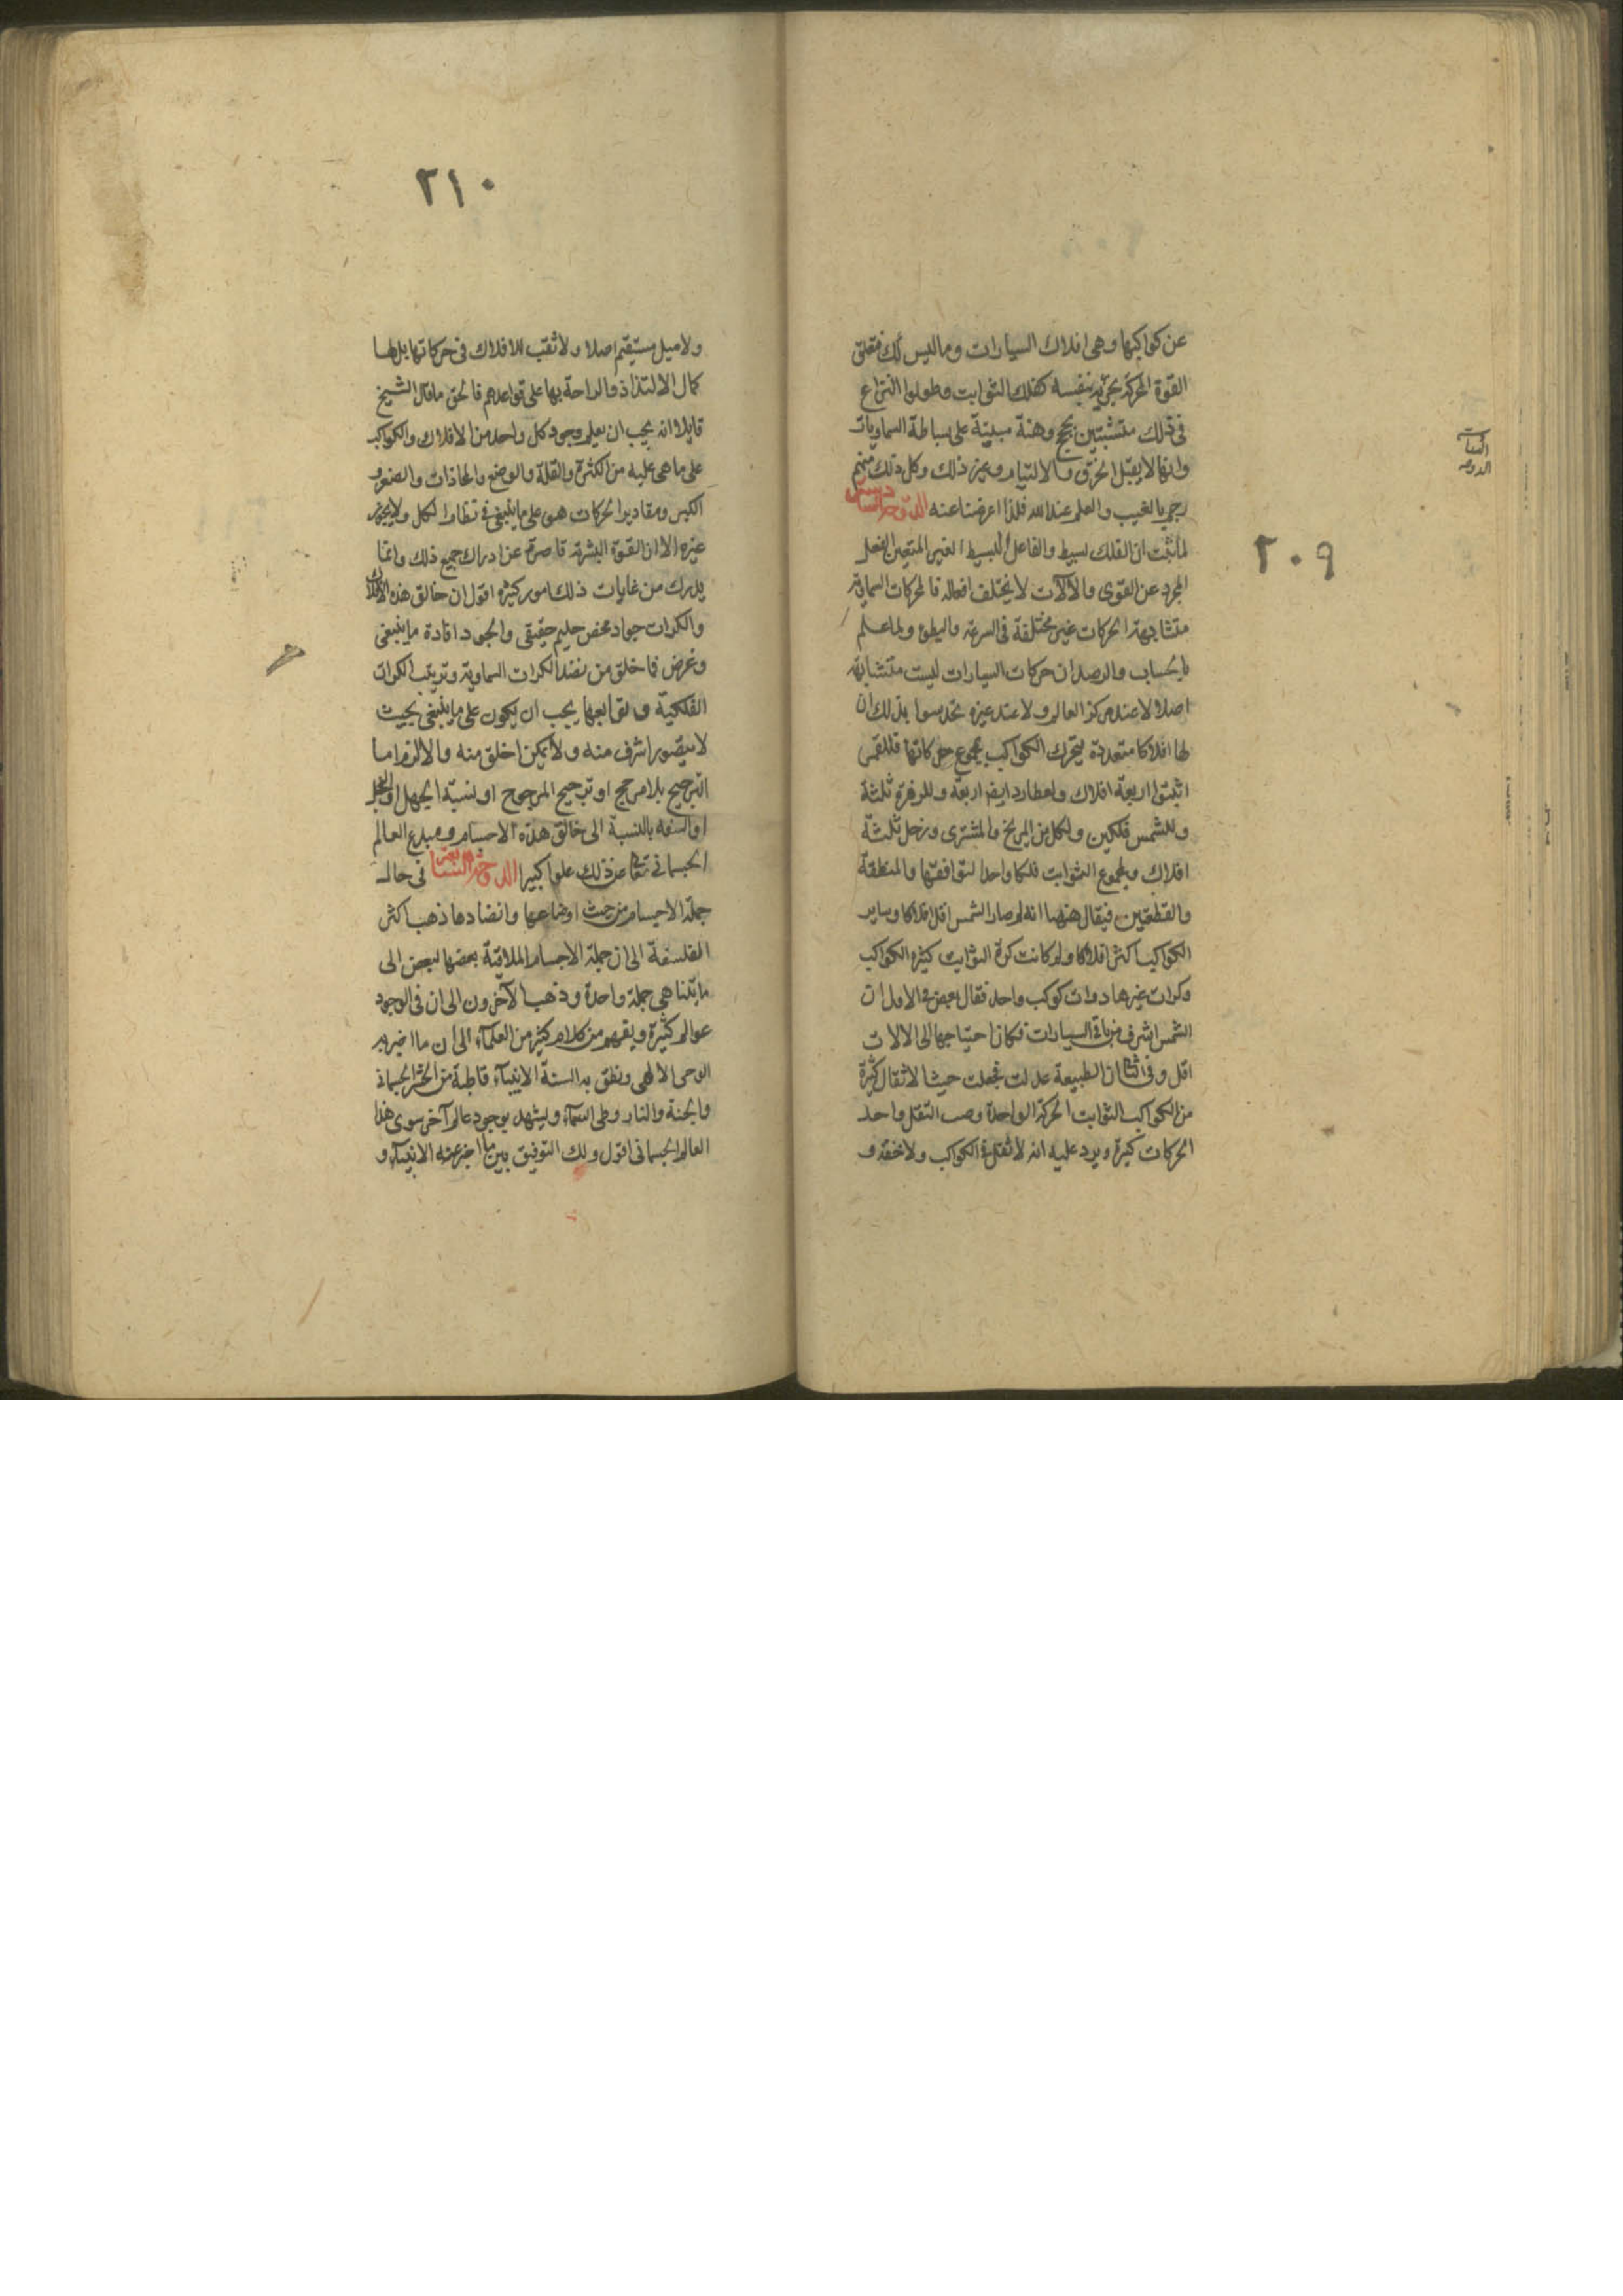 عن كواكبها وهى افلاك السيارات وما ليس كك فتعلق
القوة المحركة بجرمه نفسه كفلك الثوابت وطولوا النزاع
فى ذلك متشبثين بحجج وهنة مبنية على بساطة السماويات
وانها لا يقبل الخرق والالتيام وغير ذلك وكل ذلك منهم
رجم بالغيب والعلم عند الله فلذا اعرضنا عنه الدوحة
لما ثبت ان الفلك بسيط والفاعل البسيط الغير المتعين الفعل
المجرد عن القوى والآلات لا يختلف افعاله فالمحركات السماوية
متشابهة الحركات غير مختلفة فى السرعة والبطوء ولما علم
بالحساب والرصد ان حركات السيارات ليست متشابهة
اصلا لا عند مركز العالم ولا عند غيره تحدسوا بذلك ان
لها افلاكا متعددة يتحرك الكواكب بمجموع حركاتها فللقمر
اثبتوا اربعة افلاك ولعطارد ايضا اربعة وللزهرة ثلثة
وللشمس فلكين ولكل من المريخ والمشترى وزحل ثلثة
افلاك ولمجموع الثوابت فلكا واحدا لتوافقها والمنطقة
والقطبين فيقال ههنا انه لم صار الشمس اقل افلاكا وساير
الكواكب اكثر افلاكا ولم كانت كرة الثوابت كثيره الكواكب
وكرات غيرها ذوات كوكب واحد فقال بعض فى الاول ان
الشمس اشرف من باقى السيارات فكان احتياجها الى الالات
اقل وفى الثانى ان الطبيعة عدلت فجعلت حيث الاثقال كثيرة
من الكواكب الثوابت الحركة الواحدة وحيث الثقل واحد
الحركات كثيرة ويرد عليه انه لا ثقل فى الكواكب ولا خفة و
٢٠٩
٢١٠
ولا ميل مستقيم اصلا ولا تعب للافلاك فى حركاتها بل لها
كمال الالتذاذ والراحة بها على قواعدهم فالحق ما قال الشيخ
قايلا انه يجب ان يعلم وجود كل واحد من الافلاك والكواكب
على ما هى عليه من الكثرة والقلة والوضع والمحاذات والصغر و
الكبر ومقادير الحركات هو على ما ينبغى فى نظام الكل ولا يجوز
غيره الا ان القوة البشرية قاصرة عن ادراك جميع ذلك وانما
يدرك من غايات ذلك امور كثيره اقول ان خالق هذه الافلاك
والكرات جواد محض حليم حقيقى والجود افادة ما ينبغى
وغرض فما خلق من نضد الكرات السماوية وترتيب الكرات
الفلكية وتوابعها يجب ان يكون على ما ينبغى بحيث
لا يتصور اشرف منه ولا يمكن اخلق منه والا لزم اما
الترجيح بلا مرجح او ترجيح المرجوح او نسبة الجهل او البخل
او السفه بالنسبة الى خالق هذه الاجسام ومبدع العالم
الجسمانى تعالى عن ذلك علوا كبيرا الدوحة فى حال
جملة الاجسام من حيث اوضاعها وانضادها ذهب اكثر
الفلسفة الى ان جملة الاجسام الملاقية بعضها لبعض الى
ما يتناهى جملة واحدة وذهب الآخرون الى ان فى الوجود
عوالم كثيرة ويفهم من كلام كثير من العلماء الى ان ما اخبر به
الوحى الالهى ونطق به السنة الانبياء قاطبة من الحشر الجسمانى
والجنة والنار وطى السماء ويشهد بوجود عالم آخر سوى هذا
العالم الجسمانى اقول ولك التوفيق بين ما اخبر عنه الانبياء و